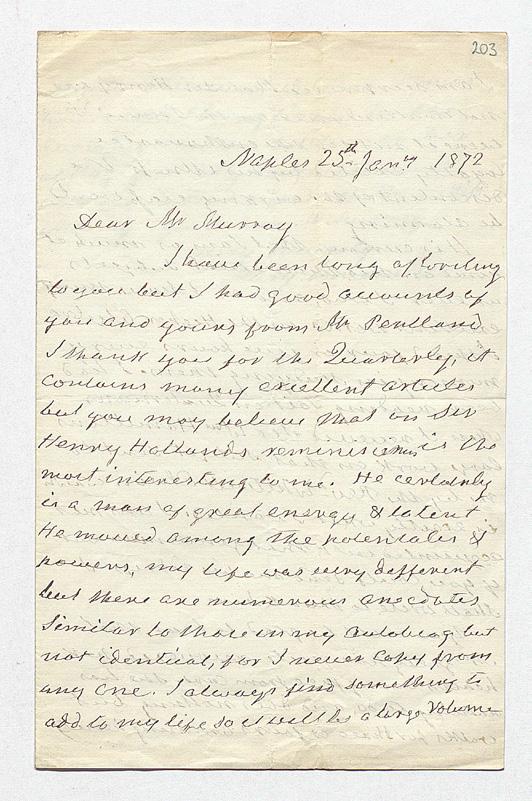 203
Naples 25th Jany 1872
Dear Mr Murray
I have been long of writing
to you but I had good accounts of
you and yours from Mr Pentland
I thank you for the Quarterly, it
contains many excellent articles
but you may believe that on Sir
Henry Hollands reminiscences is the
most interesting to me. He certainly
is a man of great energy & talent
He moved among the potentates &
powers, my life was very different
but there are numerous anecdotes
similar to those in my autobiog but
not identical, for I never copy from
any one. I always find something to
add to my life so it will be a large volume